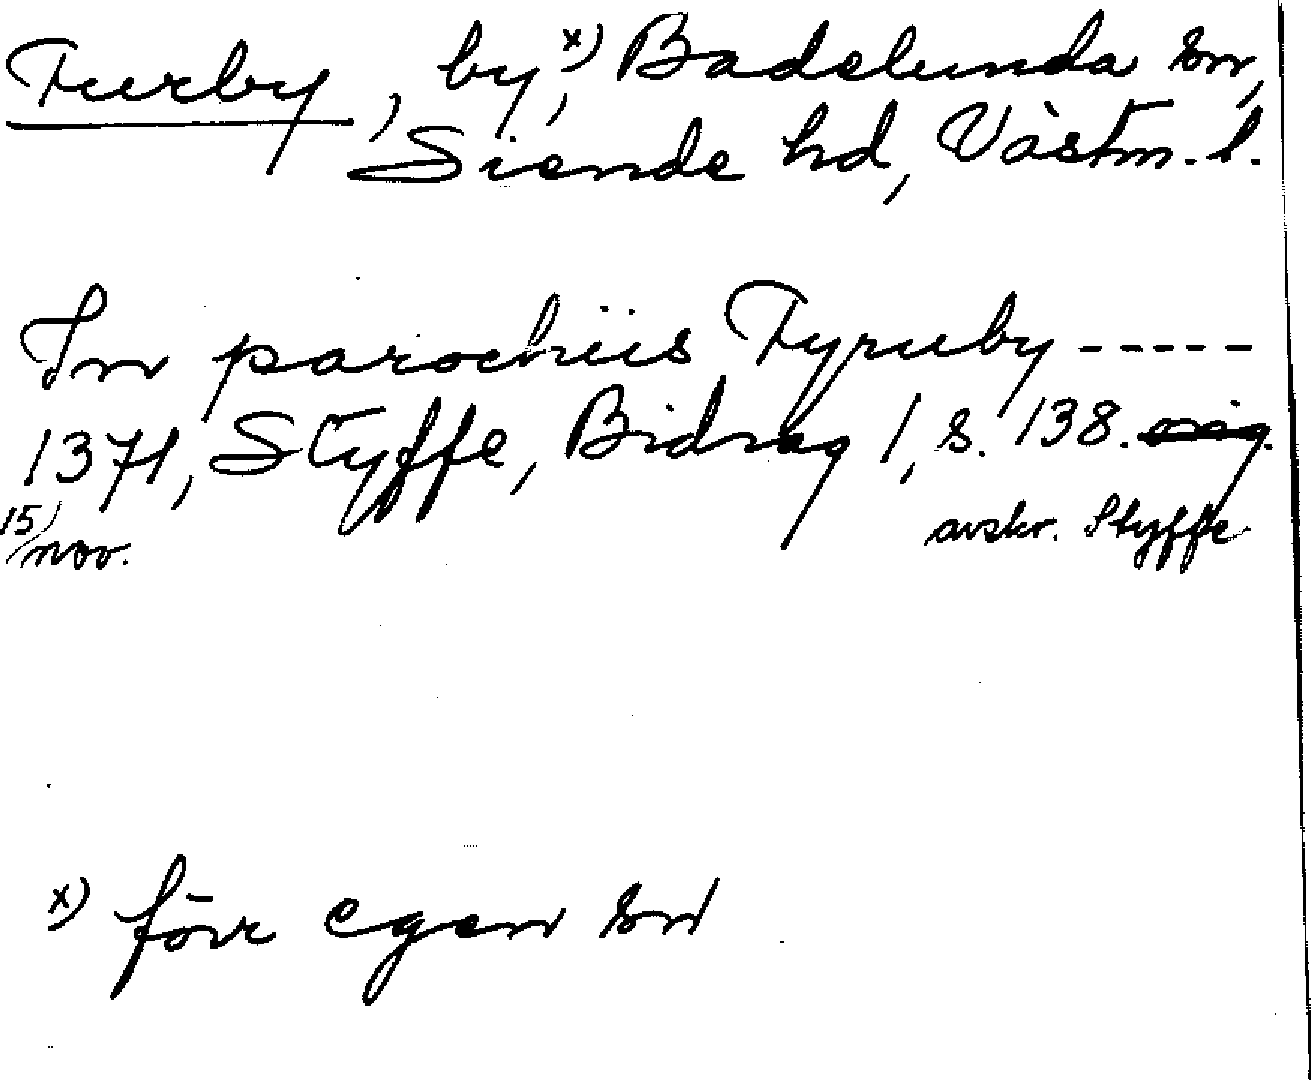 Furby, by,x) Badelunda sn,
Siende hd, Västm. l.
In parochiis Fyruby -----
1371, Styffe, Bidrag 1, s. 138. orig.
15/nov. avskr. Styffe
x) förr egen sn